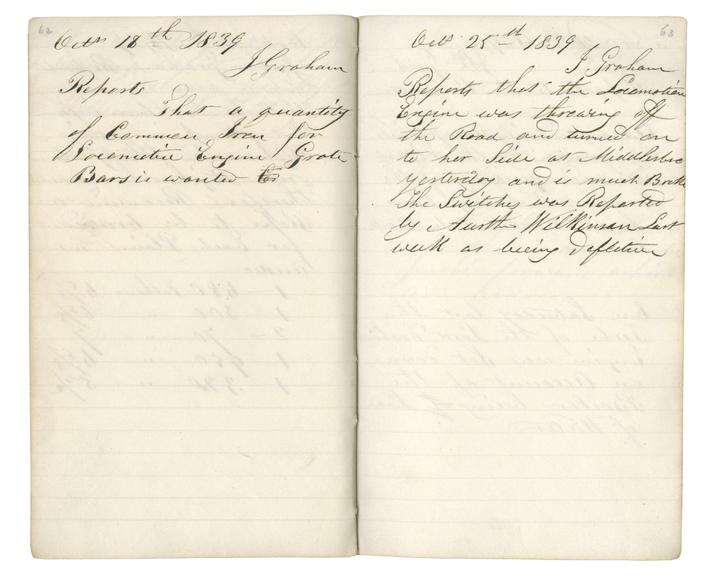 62
Octr 18th 1839
J Graham
Reports
That a quantity
of Common Iron for
Locomotive Engine Grate
Bars is wanted
63
Octr 25th 1839
J. Graham
Reports that the Locomotive
Engine was throwing off
the Road and turned on
to her Side at Middlesbro
yesterday and is much Broke
The Switches was Reported
by Wilkinson Last
week as being Defective